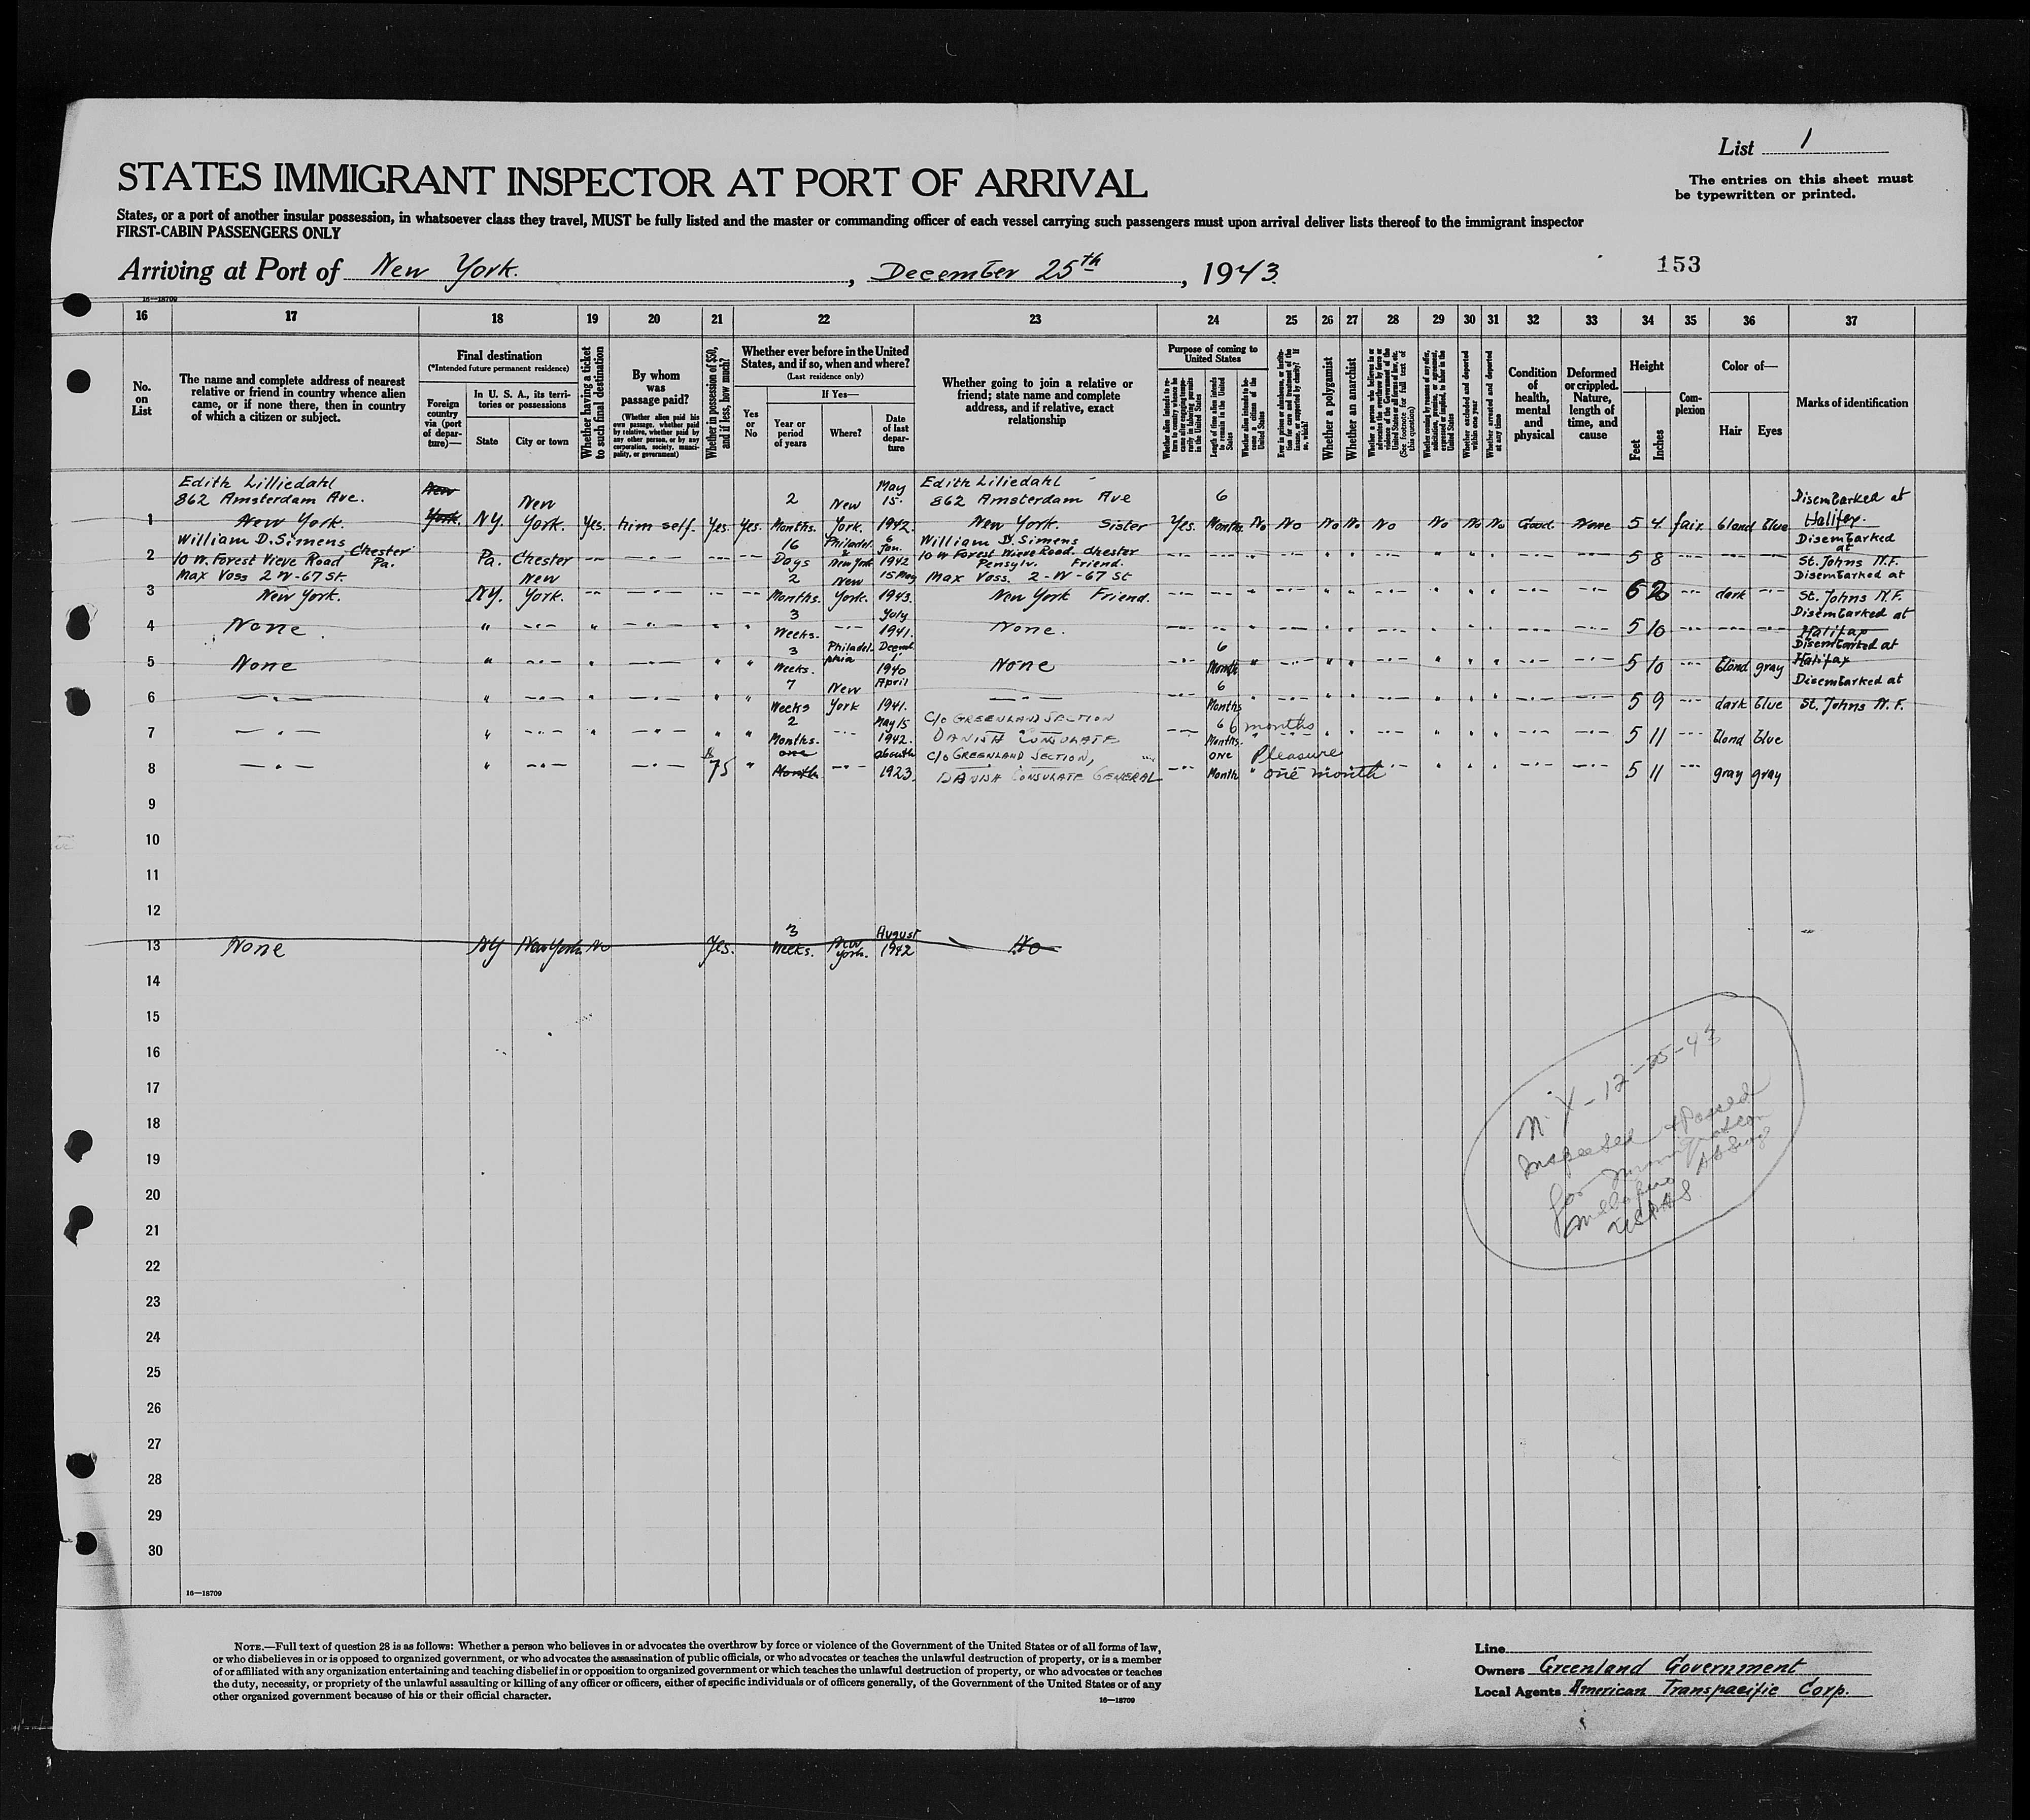 List 1
STATES IMMIGRANT INSPECTOR AT PORT OF ARRIVAL
The entries on this sheet must
be typewritten or printed.
States, or a port of another insular possession, in whatsoever class they travel, MUST be fully listed and the master or commanding officer of each vessel carrying such passengers must upon arrival deliver lists thereof to the immigrant inspector
FIRST-CABIN PASSENGERS ONLY
Arriving at Port of New York. , December 25th , 1943.
153
16—18709
16 17 18 19 20 21 22 23 24 25 26 27 28 29 30 31 32 33 34 35 36 37
No. on List
The name and complete address of nearest relative or friend in country whence alien came, or if none there, then in country of which a citizen or subject.
Final destination
(*Intended future permanent residence)
Foreign country via (port of departure)—
In U. S. A., its territories or possessions
State
City or town
Whether having a ticket to such final destination
By whom was passage paid?
(Whether alien paid his own passage, whether paid by relative, whether paid by any other person, or by any corporation, society, municipality, or government)
Whether in possession of $50, and if less, how much?
Whether ever before in the United States, and if so, when and where?
(Last residence only)
Yes or No
If Yes—
Year or period of years
Where?
Date of last departure
Whether going to join a relative or friend; state name and complete address, and if relative, exact relationship
Purpose of coming to United States
Length of time alien intends to remain in the United States
Whether alien intends to become a citizen of the United States
Whether a polygamist
Whether an anarchist
Whether excluded and deported within one year
Whether arrested and deported at any time
Condition of health, mental and physical
Deformed or crippled. Nature, length of time, and cause
Height
Feet
Inches
Complexion
Color of—
Hair
Eyes
Marks of identification
1 Edith Lilliedahl 862 Amsterdam Ave. New York. New York. NY. New York. Yes. him self. Yes. Yes. 2 Months. New York. May 15. 1942. Edith Liliedahl 862 Amsterdam Ave New York. Sister Yes. 6 Months No No No No No No No No Good. None 5 4 fair bland blue Disembarked at Halifax.
2 William D. Simens 10 W. Forest Vieve Road Chester Pa. Pa. Chester 16 Days Philadel. & New York 6 Jan. 1942 William D. Simens 10 W Forest Vieve Road. Chester Pensylv. Friend. 5 8 Disembarked at St. Johns N.F.
3 Max Voss 2 W-67 St. New York. NY. New York. 2 Months. New York. 15 May 1943. Max Voss. 2-W-67 St New York Friend. 6 2 dark Disembarked at St. Johns N.F.
4 None. " " 3 Weeks. July 1941. None. 5 10 Disembarked at Halifax
5 None " " " 3 Weeks. Philadelphia Decemb. 1940 None 6 Month 5 10 blond gray Disembarked at Halifax
6 — " — " " " 7 Weeks New York April 1941. 6 Months 5 9 dark blue Disembarked at St. Johns N.F.
7 — " — " " " " 2 Months. May 15 1942. C/o GREENLAND SECTION DANISH CONSULATE 6 Months. 6 months 5 11 blond blue
8 — " — " 75 " one Month abouth 1923. C/o GREENLAND SECTION, DANISH CONSULATE GENERAL one Month Pleasure one month 5 11 gray gray
9
10
11
12
13 None NY New York No Yes. 3 Weeks. New York. August 1942 No
14
15
16
17
18
19
20
21
22
23
24
25
26
27
28
29
30
N.Y - 12-25-43
Inspected & Passed
for Immigration
16—18709
NOTE.—Full text of question 28 is as follows: Whether a person who believes in or advocates the overthrow by force or violence of the Government of the United States or of all forms of law,
or who disbelieves in or is opposed to organized government, or who advocates the assassination of public officials, or who advocates or teaches the unlawful destruction of property, or is a member
of or affiliated with any organization entertaining and teaching disbelief in or opposition to organized government or which teaches the unlawful destruction of property, or who advocates or teaches
the duty, necessity, or propriety of the unlawful assaulting or killing of any officer or officers, either of specific individuals or of officers generally, of the Government of the United States or of any
other organized government because of his or their official character.
16—18709
Line
Owners Greenland Government
Local Agents American Transpacific Corp.